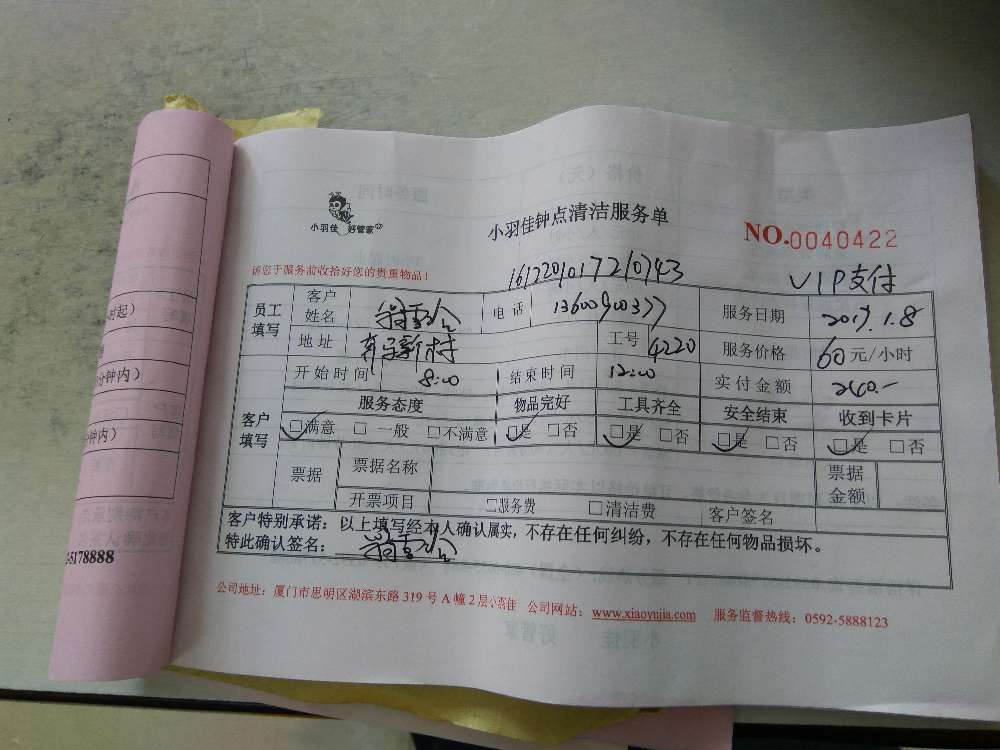 小羽佳 好管家
小羽佳钟点清洁服务单
NO.0040422
请您于服务前收拾好您的贵重物品！
1612201017210743
VIP支付
员工填写 客户姓名 电话 13600900377 服务日期 2017.1.8
地址 工号 4220 服务价格 60元/小时
开始时间 8:00 结束时间 12:00 实付金额 240.-
客户填写 服务态度 物品完好 工具齐全 安全结束 收到卡片
☑满意 □一般 □不满意 ☑是 □否 ☑是 □否 ☑是 □否 ☑是 □否
票据 票据名称 票据金额
开票项目 □服务费 □清洁费 客户签名
客户特别承诺：以上填写经本人确认属实，不存在任何纠纷，不存在任何物品损坏。
特此确认签名：
公司地址：厦门市思明区湖滨东路319号A幢2层小羽佳 公司网站：www.xiaoyujia.com 服务监督热线：0592-5888123
时起）
分钟内）
钟内）
-5178888